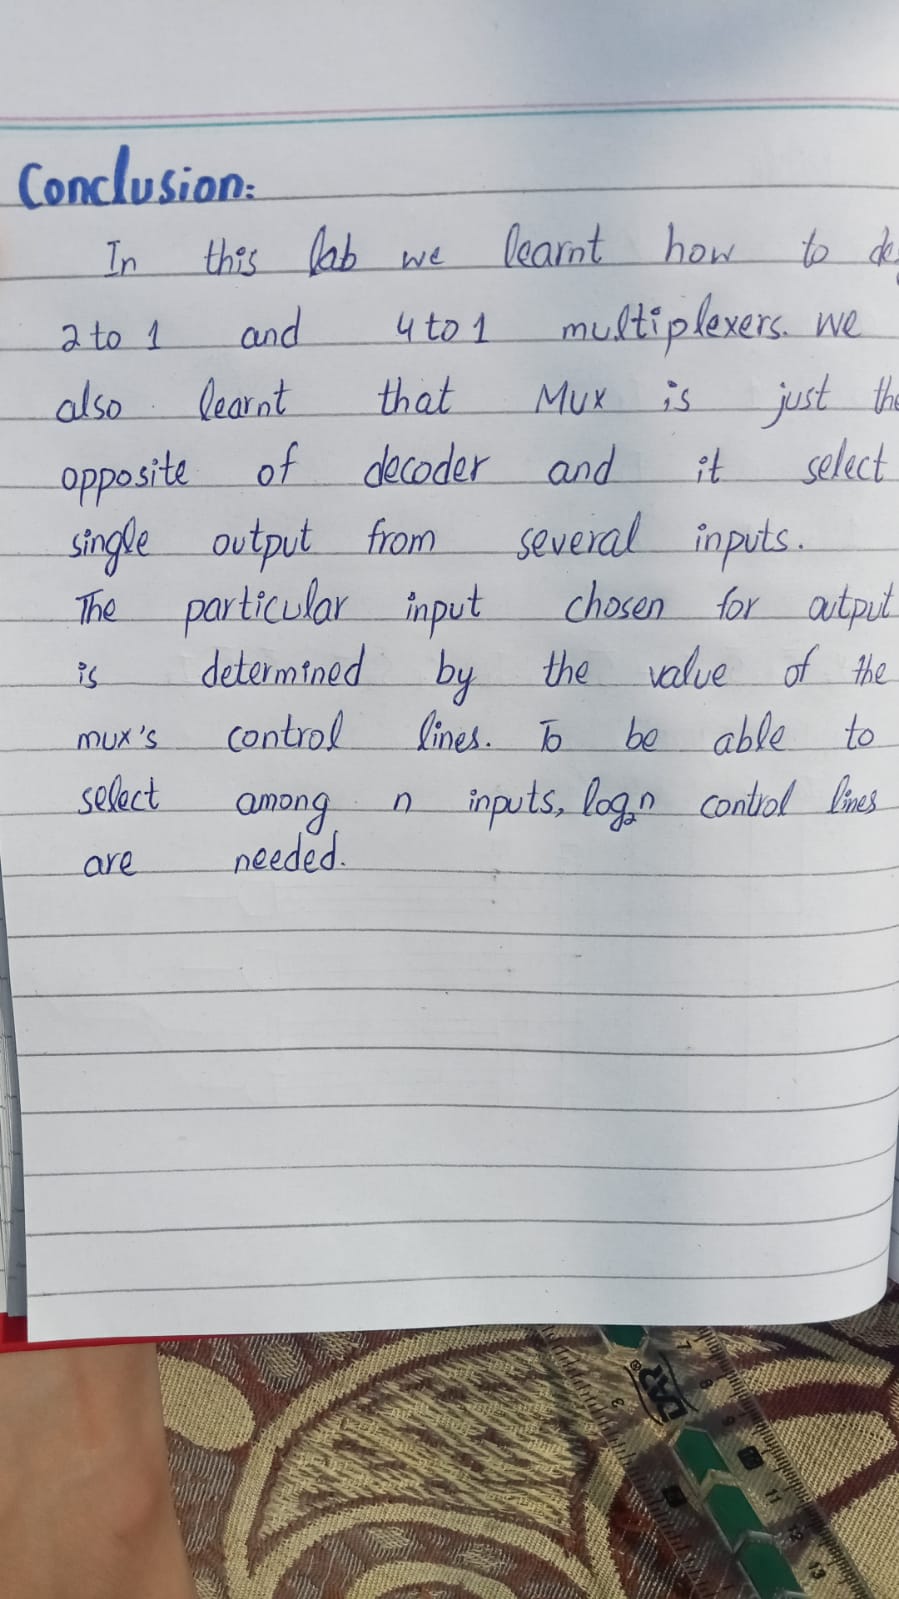 Conclusion:
In this lab we learnt how to
2 to 1 and 4 to 1 multiplexers. we
also learnt that Mux is just the
opposite of decoder and it select
single output from several inputs.
The particular input chosen for output
is determined by the value of the
mux's control lines. To be able to
select among n inputs, log₂n control lines
are needed.
7
8
9
11
12
13
3